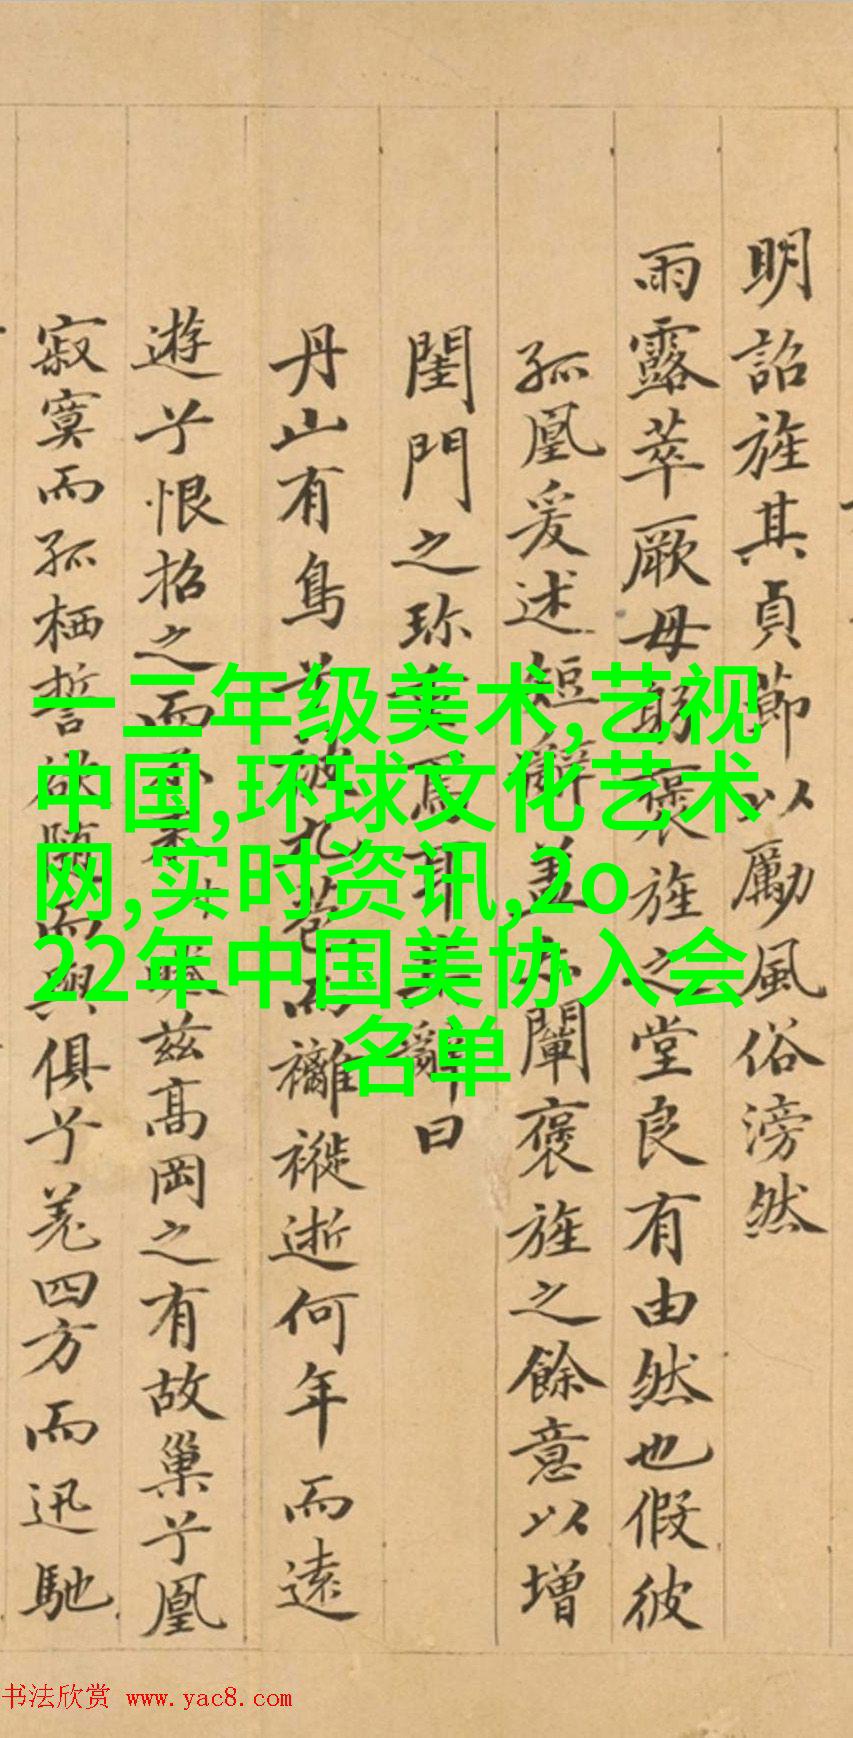 明詔旌其貞節以勵風俗滂然
雨露萃厥母躬褒旌之堂良有由然也假彼
孤凰爰述短辭盖以闡褒旌之餘意以增
閨門之珎
丹山有鳥兮
九苞而襹褷逝何年而遠
遊兮恨招之而不
兹高岡之有故巢兮凰
寂寞而孤栖誓欲随而與俱兮羌四方而迅馳
一二年级美术,艺视
中国,环球文化艺术
网,实时资讯,2o
22年中国美协入会
名单
书法欣赏 www.yac8.com